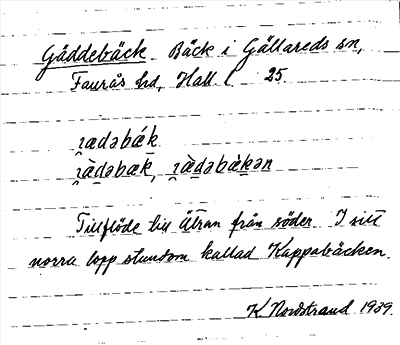 Gäddebäck Bäck i Gällareds sn,
Faurås hd, Hall. l. 25.
ʒædəbǽk
ʒæ̀dəbæk, ʒæ̀dəbækən
Tillflöde till Ätran från söder I sitt
norra lopp stundom kallad Kappabäcken.
K Nordstrand 1939.